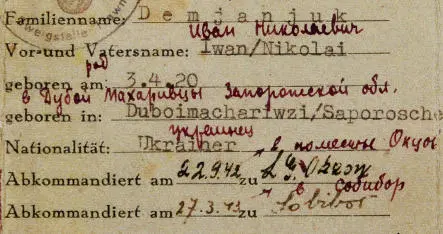 Familienname: Demjanjuk
Иван Николаевич
Vor-und Vatersname: Iwan/Nikolai
род
geboren am 3.4.20
в Дубой Махаривцы Запорожской обл.
geboren in: Duboimachariwzi/Saporosche
украинец
Nationalität: Ukrainer
в поместье Окцов
Abkommandiert am 22.9.42 zu L.G. Okzow
в Собибор
Abkommandiert am 27.3.43 zu Sobibor